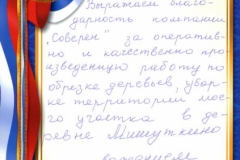 Выражаем благо-
дарность компании
„Соверен" за оператив-
но и качественно про-
изведенную работу по
обрезке деревьев, убор-
ке территории мое-
го участка в де-
ревне Мишуткино